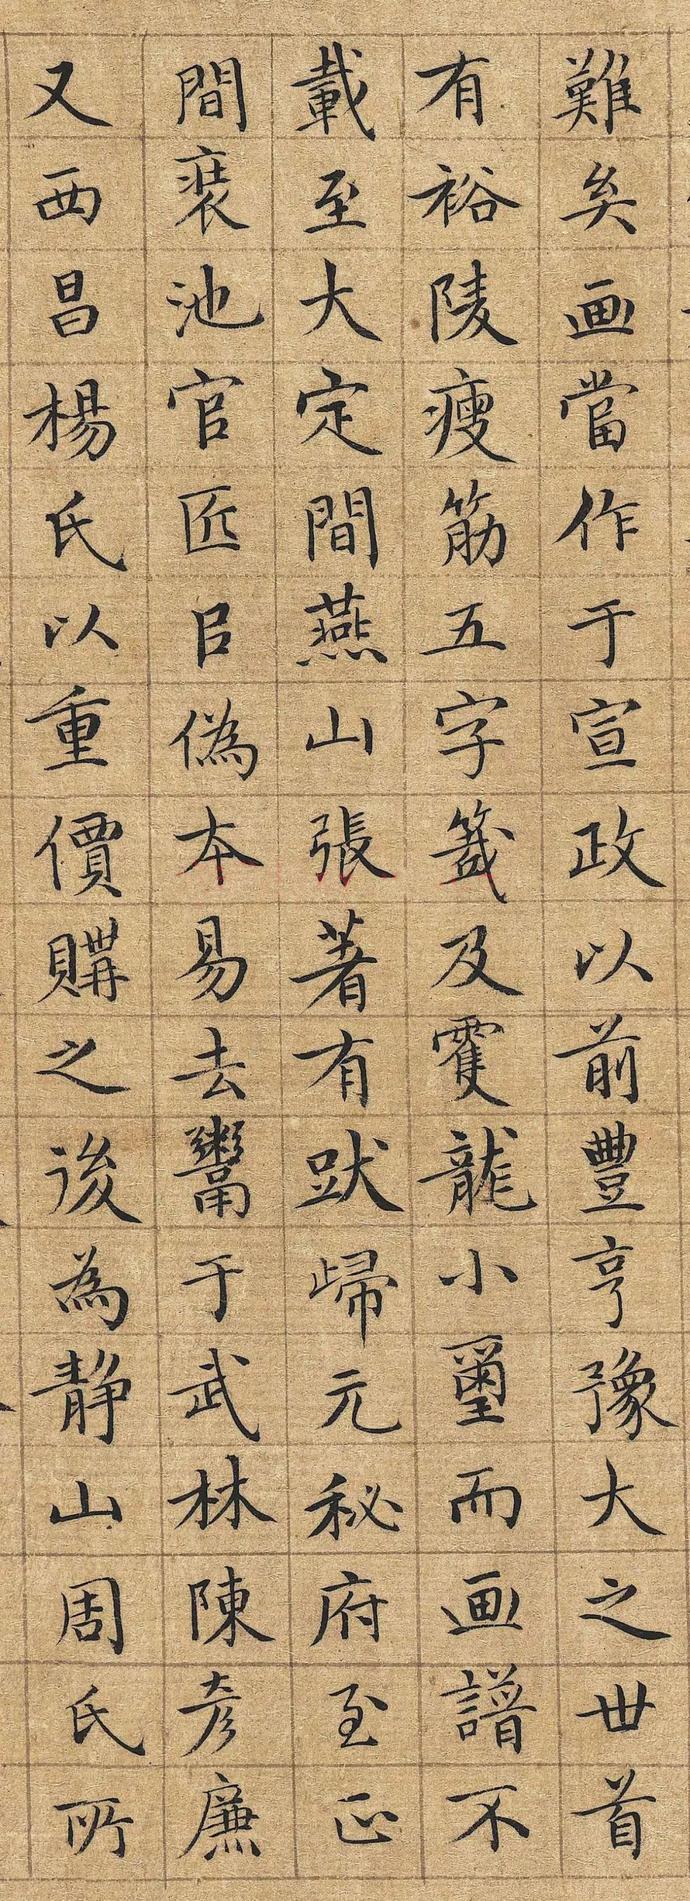 難矣画當作于宣政以前豐亨豫大之世首
有裕陵瘦筋五字籤及雙龍小璽而画譜不
載至大定間燕山張著有跋歸元秘府至正
間裴池官匠㠯偽本易去鬻于武林陳彦廉
又西昌楊氏以重價購之後為静山周氏所